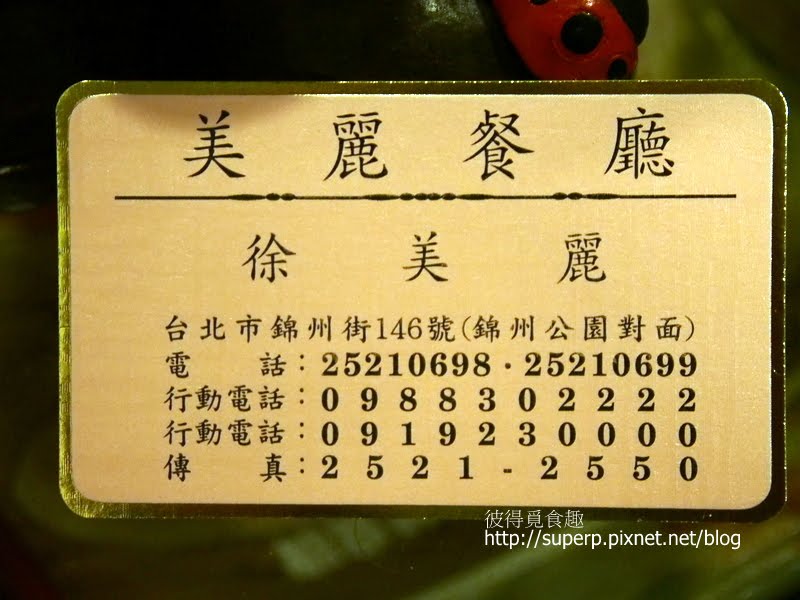 美麗餐廳
徐美麗
台北市錦州街146號(錦州公園對面)
電話：25210698·25210699
行動電話：0988302222
行動電話：0919230000
傳真：2521-2550
彼得覓食趣
http://superp.pixnet.net/blog